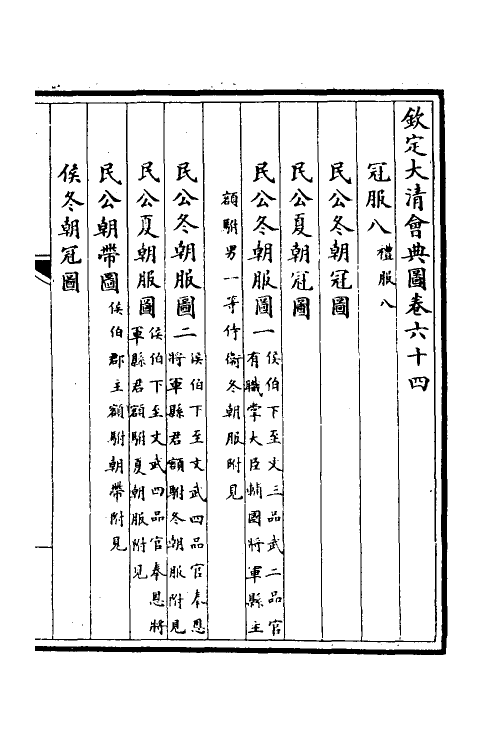 欽定大清會典圖卷六十四
冠服八 禮服八
民公冬朝冠圖
民公夏朝冠圖
民公冬朝服圖一 侯伯下至文三品武二品官
有職掌大臣輔國將軍縣主
額駙男一等侍衞冬朝服附見
民公冬朝服圖二 侯伯下至文武四品官奉恩
將軍縣君額駙冬朝服附見
民公夏朝服圖 侯伯下至文武四品官奉恩將
軍縣君額駙夏朝服附見
民公朝帶圖 侯伯郡主額駙朝帶附見
侯冬朝冠圖